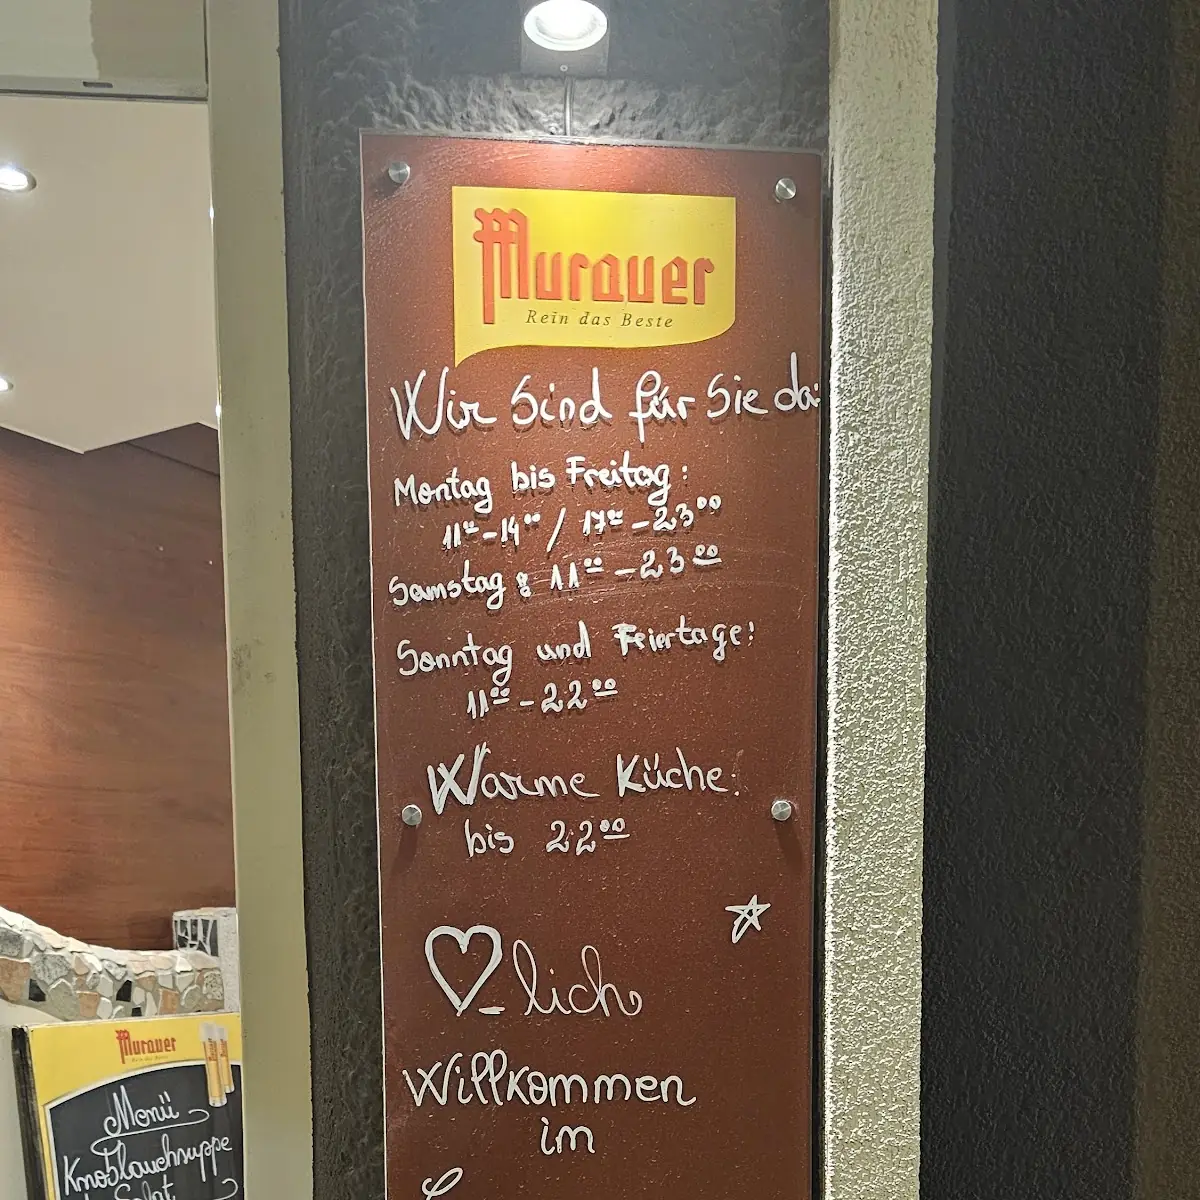 Murauer
Rein das Beste
Wir sind für Sie da:
Montag bis Freitag:
11⁰⁰-14⁰⁰ / 17⁰⁰-23⁰⁰
Samstag: 11⁰⁰-23⁰⁰
Sonntag und Feiertage:
11⁰⁰-22⁰⁰
Warme Küche:
bis 22⁰⁰
♡-lich
Willkommen
im
Murauer
Rein das Beste
Menü
Knoblauchsuppe
Salat